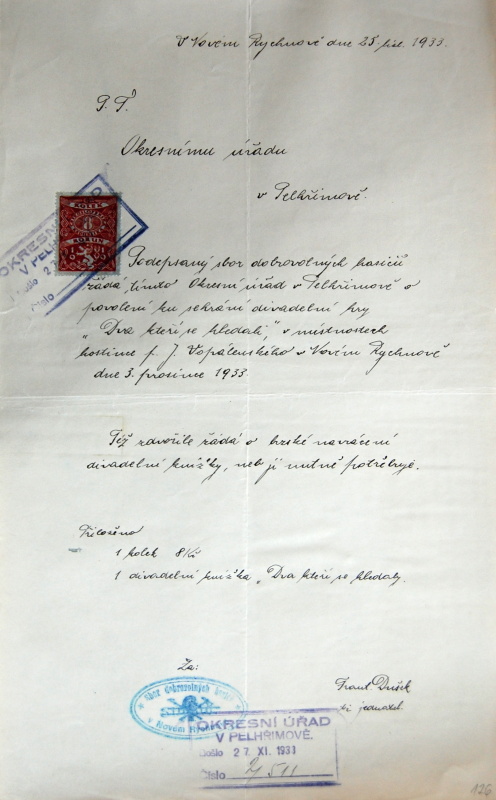 V Novém Rychnově dne 25. list. 1933.
P. T.
Okresnímu úřadu
v Pelhřimově.
KOLEK
8
KORUN
OKRESNÍ
V PELH
Došlo 2
Číslo
Podepsaný sbor dobrovolných hasičů
žádá tímto Okresní úřad v Pelhřimově o
povolení ku sehrání divadelní hry
„Dva kteří se hledali," v místnostech
hostince p. J. Vopálenského v Novém Rychnově
dne 3. prosince 1933.
Též zdvořile žádá o brzské navrácení
divadelní knížky, neb ji nutně potřebuje.
Přiloženo
1 kolek 8 Kč
1 divadelní knížka „Dva kteří se hledaly.
Za:
Sbor dobrovolných hasičů
v Novém Rychnově
Frant. Dušek
jednatel
OKRESNÍ ÚŘAD
V PELHŘIMOVĚ.
Došlo 27. XI. 1933
Číslo
126